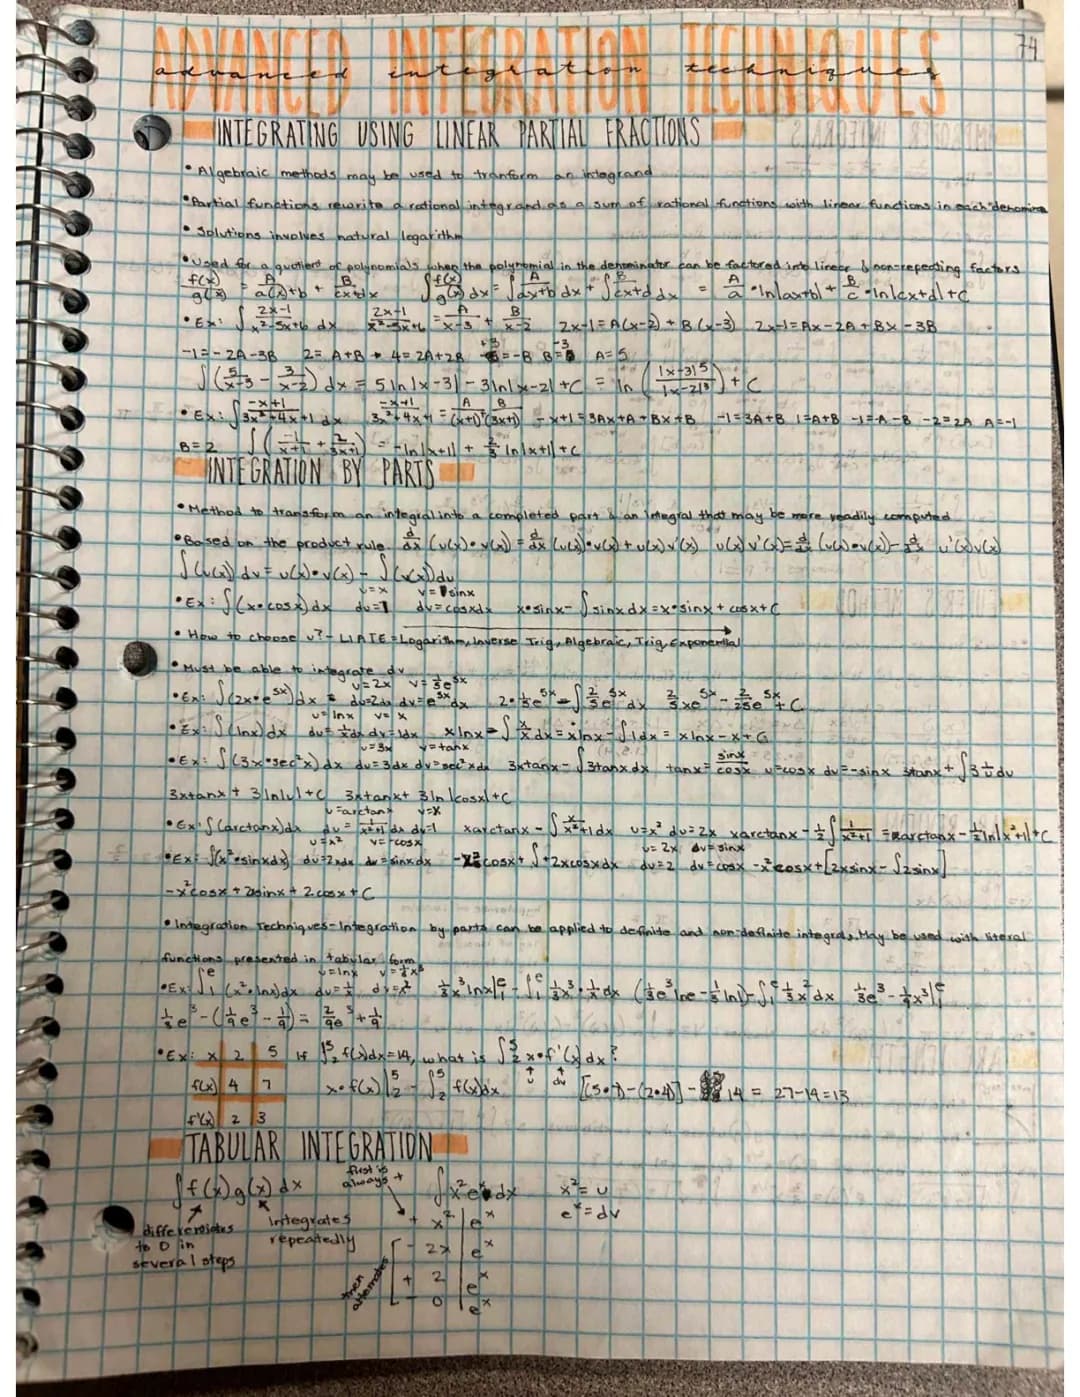 ADVANCED INTEGRATION TECHNIQUES
advanced integration techniques
74
INTEGRATING USING LINEAR PARTIAL FRACTIONS
• Algebraic methods may be used to tranform an integrand
• Partial functions rewrite a rational integrand as a sum of rational functions with linear functions in each denomina
• Solutions involves natural logarithm
• Used for a quotient of polynomials when the polynomial in the denominator can be factored into linear & non-repeating factors
f(x)/g(x) = A/a(x)+b + B/cx+dx ∫f(x)/g(x) dx = ∫A/ax+b dx + ∫B/cx+d dx = A/a • ln|ax+b| + B/c • ln|cx+d| + C
• Ex: ∫ 2x-1/x²-5x+6 dx 2x-1/x²-5x+6 = A/x-3 + B/x-2 2x-1 = A(x-2) + B(x-3) 2x-1 = Ax - 2A + Bx - 3B
-1 = -2A - 3B 2 = A+B → 4 = 2A+2B = -B A = 5
∫(5/x-3 - 3/x-2) dx = 5 ln|x-3| - 3 ln|x-2| + C = ln(|x-3|5/|x-2|3) + C
• Ex: ∫ -x+1/3x²+4x+1 dx -x+1/3x²+4x+1 = A/(x+1) + B/(3x+1) -x+1 = 3Ax+A+Bx+B -1=3A+B 1=A+B -1=-A-B -2=2A A=-1
B=2 ∫(-1/x+1 + 2/3x+1) = -ln|x+1| + 2/3 ln|x+1| + C
INTEGRATION BY PARTS
• Method to transform an integral into a completed part & an integral that may be more readily computed
• Based on the product rule d/dx (u(x)•v(x)) = d/dx (u(x))•v(x) + u(x)v'(x) u(x)v'(x) = d/dx (u(x)•v(x)) - u'(x)v(x)
∫(u(x)) dv = u(x)•v(x) - ∫(v(x)) du
u=x v=sinx
• Ex: ∫(x•cosx)dx du=1 dv=cosxdx x•sinx - ∫sinxdx = x•sinx + cosx + C
• How to choose u? - LIATE = Logarithm, Inverse Trig, Algebraic, Trig, Exponential
• Must be able to integrate dv
u=2x v=1/5e⁵ˣ
• Ex: ∫(2x•e⁵ˣ)dx = du=2dx dv=e⁵ˣdx 2•1/5e⁵ˣ - ∫2/5e⁵ˣdx 2/5xe⁵ˣ - 2/25e⁵ˣ + C
u=lnx v=x
• Ex: ∫(lnx)dx du=1/xdx dv=1dx xlnx - ∫x/x dx = xlnx - ∫1dx = xlnx - x + C
u=3x v=tanx
• Ex: ∫(3x•sec²x)dx du=3dx dv=sec²xdx 3xtanx - ∫3tanxdx tanx = sinx/cosx u=cosx du=-sinx 3tanx + ∫3 1/u du
3xtanx + 3ln|u| + C 3xtanx + 3ln|cosx| + C
u=arctanx v=x
• Ex: ∫(arctanx)dx du=1/x²+1 dx dv=1 xarctanx - ∫x/x²+1 dx u=x² du=2x xarctanx - 1/2∫1/x²+1 = xarctanx - 1/2 ln|x²+1| + C
u=x² v=-cosx u=2x dv=sinx
• Ex: ∫(x²•sinxdx) du=2xdx dv=sinxdx -x²cosx + ∫+2xcosxdx du=2 dv=cosx -x²cosx + [2xsinx - ∫2sinx]
-x²cosx + 2xsinx + 2cosx + C
• Integration Techniques - Integration by parts can be applied to definite and non-definite integrals. May be used with literal
functions presented in tabular form
u=lnx v=1/3x³
• Ex: ∫₁ᵉ (x²•lnx)dx du=1/x dv=x² 1/3x³lnx|₁ᵉ - ∫₁ᵉ 1/3x³•1/x dx (1/3e³lne - 1/3ln1) - ∫₁ᵉ 1/3x²dx 1/3e³ - 1/9x³|₁ᵉ
1/3e³ - (1/9e³ - 1/9) = 2/9e³ + 1/9
• Ex: x 2 5 If ∫₂⁵ f(x)dx=14, what is ∫₂⁵ x•f'(x)dx?
f(x) 4 7 x•f(x)|₂⁵ - ∫₂⁵ f(x)dx u dv [(5•7)-(2•4)] - 14 = 27-14=13
f'(x) 2 3
TABULAR INTEGRATION
∫f(x)g(x)dx first is always + ∫x²eˣdx x²=u
eˣ=dv
differentiates to 0 in several steps
Integrates repeatedly
+ x² eˣ
- 2x eˣ
then alternates
+ 2 eˣ
- 0 eˣ